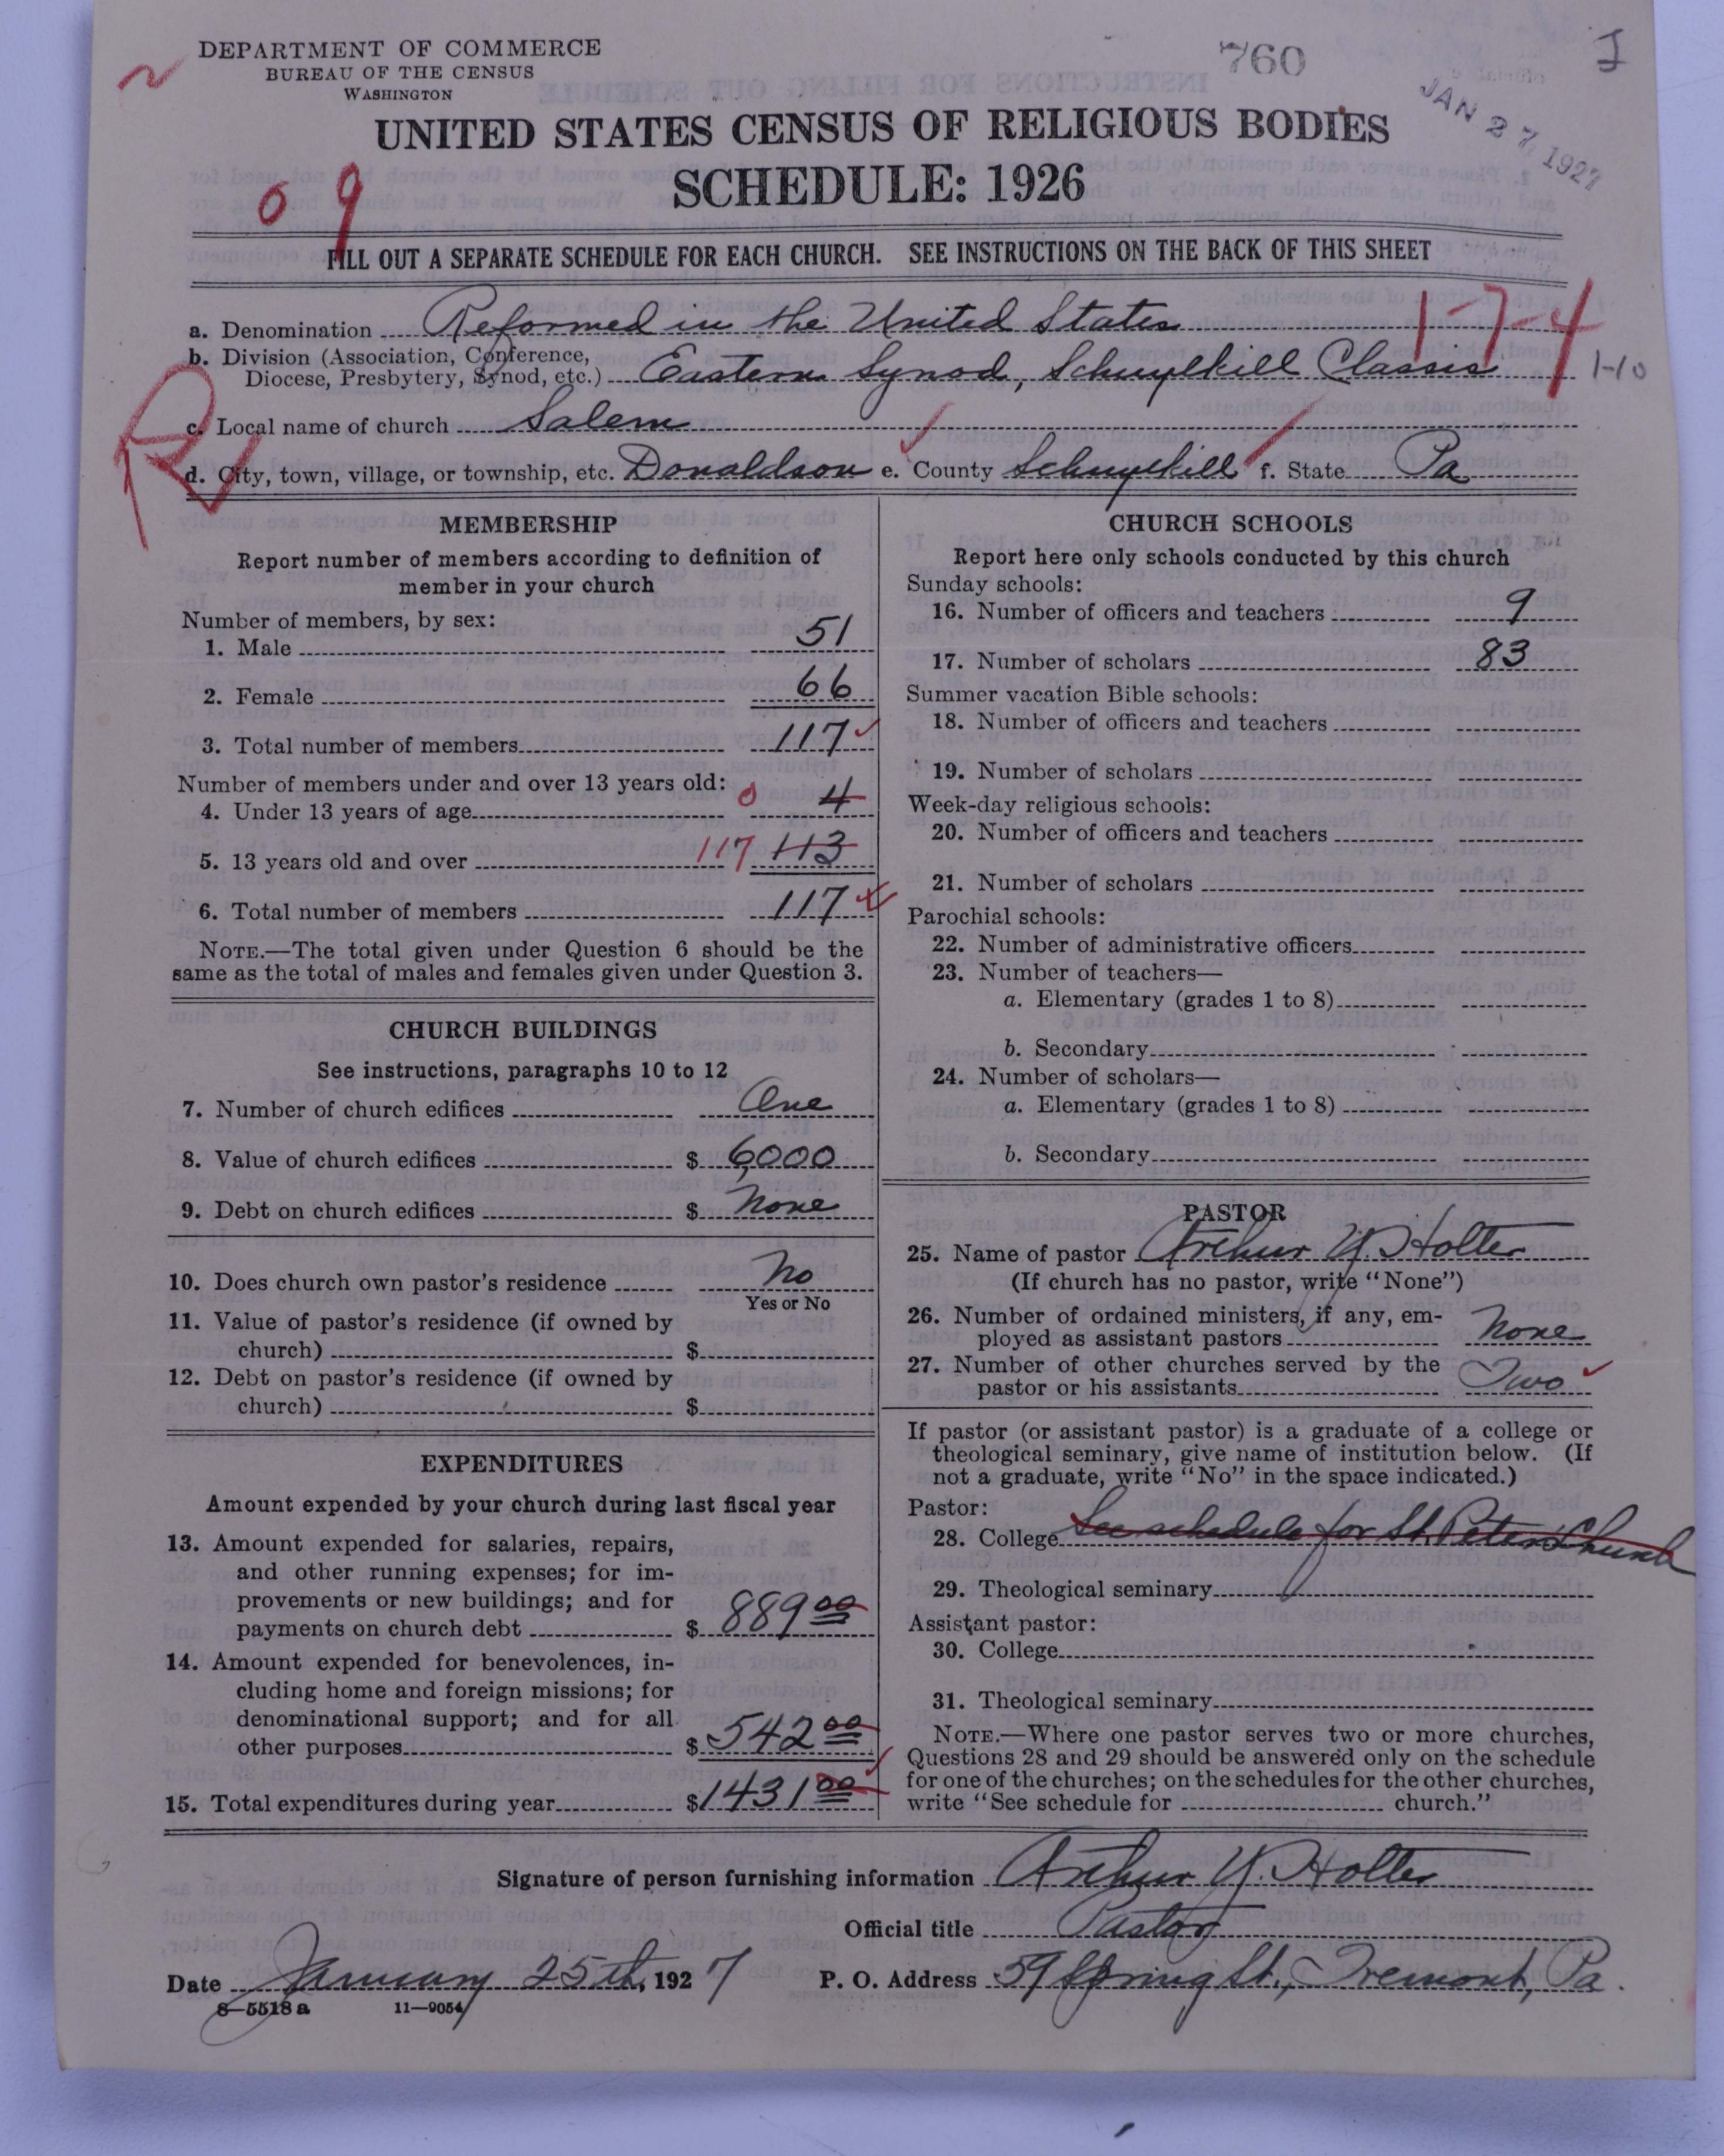 DEPARTMENT OF COMMERCE
BUREAU OF THE CENSUS
WASHINGTON
760
JAN 27 1927
UNITED STATES CENSUS OF RELIGIOUS BODIES
SCHEDULE: 1926
0 9
FILL OUT A SEPARATE SCHEDULE FOR EACH CHURCH. SEE INSTRUCTIONS ON THE BACK OF THIS SHEET
1-7-4
a. Denomination Reformed in the United States
b. Division (Association, Conference,
Diocese, Presbytery, Synod, etc.) Eastern Synod, Schuylkill Classis 1-10
c. Local name of church Salem
d. City, town, village, or township, etc. Donaldson e. County Schuylkill f. State Pa
MEMBERSHIP
Report number of members according to definition of
member in your church
Number of members, by sex:
1. Male 51
2. Female 66
3. Total number of members 117
Number of members under and over 13 years old:
4. Under 13 years of age 0 4
5. 13 years old and over 117 113
6. Total number of members 117
NOTE.—The total given under Question 6 should be the
same as the total of males and females given under Question 3.
CHURCH BUILDINGS
See instructions, paragraphs 10 to 12
7. Number of church edifices One
8. Value of church edifices $ 6000
9. Debt on church edifices $ None
10. Does church own pastor's residence No
Yes or No
11. Value of pastor's residence (if owned by
church) $
12. Debt on pastor's residence (if owned by
church) $
EXPENDITURES
Amount expended by your church during last fiscal year
13. Amount expended for salaries, repairs,
and other running expenses; for im-
provements or new buildings; and for
payments on church debt $ 889 00
14. Amount expended for benevolences, in-
cluding home and foreign missions; for
denominational support; and for all
other purposes $ 542 00
15. Total expenditures during year $ 1431 00
CHURCH SCHOOLS
Report here only schools conducted by this church
Sunday schools:
16. Number of officers and teachers 9
17. Number of scholars 83
Summer vacation Bible schools:
18. Number of officers and teachers
19. Number of scholars
Week-day religious schools:
20. Number of officers and teachers
21. Number of scholars
Parochial schools:
22. Number of administrative officers
23. Number of teachers—
a. Elementary (grades 1 to 8)
b. Secondary
24. Number of scholars—
a. Elementary (grades 1 to 8)
b. Secondary
PASTOR
25. Name of pastor Arthur Y. Holter
(If church has no pastor, write "None")
26. Number of ordained ministers, if any, em-
ployed as assistant pastors None
27. Number of other churches served by the
pastor or his assistants Two
If pastor (or assistant pastor) is a graduate of a college or
theological seminary, give name of institution below. (If
not a graduate, write "No" in the space indicated.)
Pastor:
28. College See schedule for St. Peters Church
29. Theological seminary
Assistant pastor:
30. College
31. Theological seminary
NOTE.—Where one pastor serves two or more churches,
Questions 28 and 29 should be answered only on the schedule
for one of the churches; on the schedules for the other churches,
write "See schedule for church."
Signature of person furnishing information Arthur Y. Holter
Official title Pastor
Date January 25th, 1927 P. O. Address 59 Spring St., Tremont, Pa.
8—5518 a 11—9054